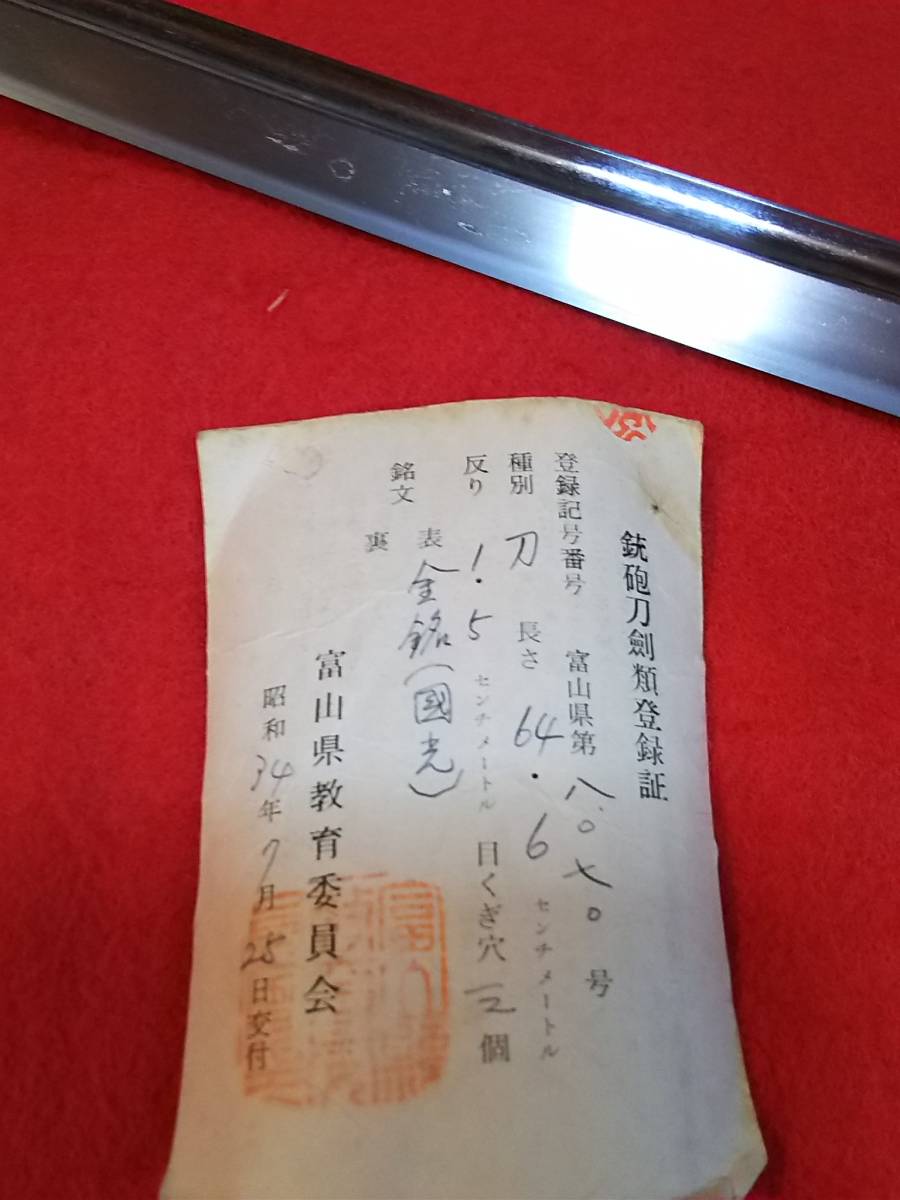 銃砲刀劍類登録証
登録記号番号 富山県第八〇七〇号
種別 刀 長さ 64.6 センチメートル
反り 1.5 センチメートル 目くぎ穴 三個
銘文 表 金銘(國光)
裏
富山県教育委員会
昭和34年7月25日交付